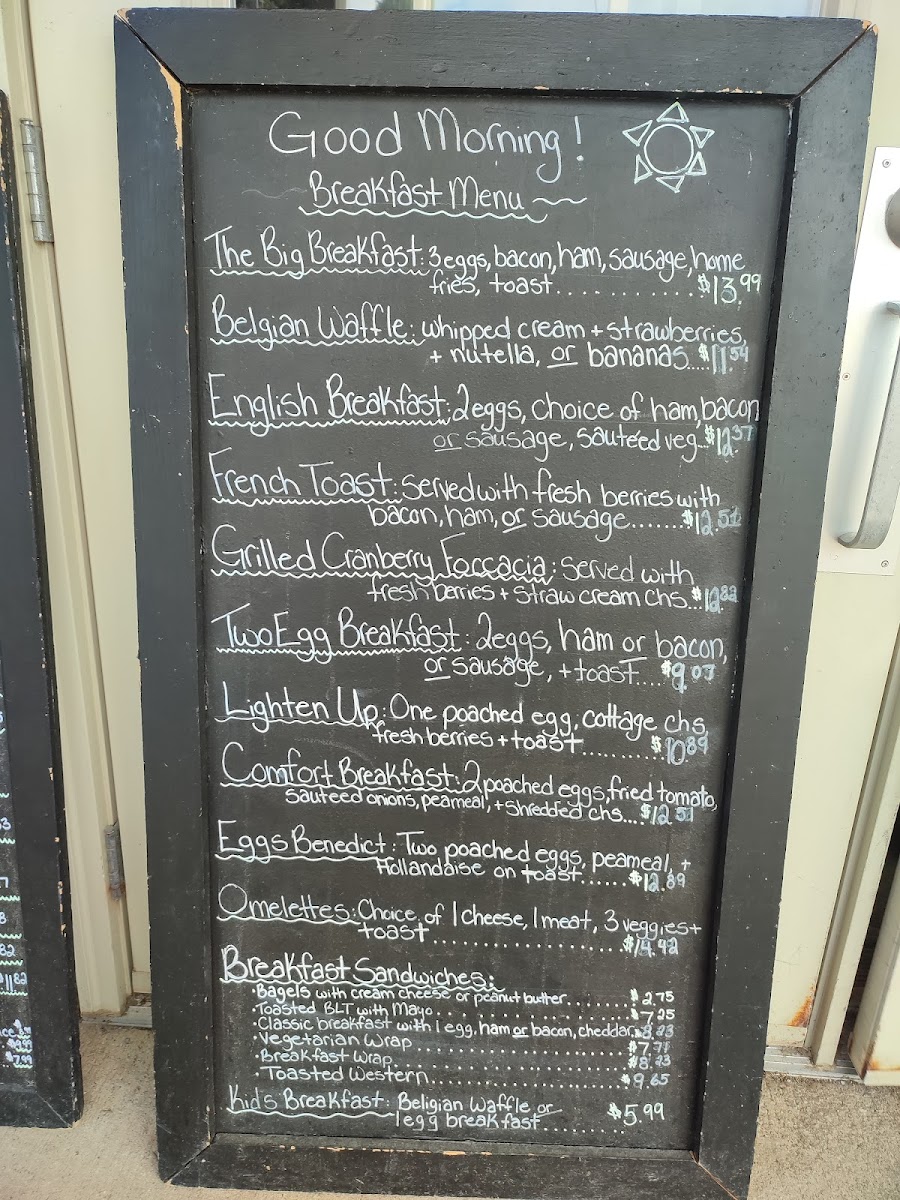 Good Morning!
Breakfast Menu
The Big Breakfast: 3 eggs, bacon, ham, sausage, home
fries, toast............ $13.99
Belgian Waffle: whipped cream + strawberries,
+ nutella, or bananas.... $11.54
English Breakfast: 2 eggs, choice of ham, bacon
or sausage, sauteéd veg... $12.37
French Toast: served with fresh berries with
bacon, ham, or sausage...... $12.52
Grilled Cranberry Foccacia: served with
fresh berries + straw cream chs... $12.22
Two Egg Breakfast: 2 eggs, ham or bacon,
or sausage, + toast.... $9.07
Lighten Up: One poached egg, cottage chs,
fresh berries + toast........ $10.89
Comfort Breakfast: 2 poached eggs, fried tomato,
sauteed onions, peameal, + shredded chs.... $12.51
Eggs Benedict: Two poached eggs, peameal, +
Hollandaise on toast...... $12.89
Omelettes: Choice of 1 cheese, 1 meat, 3 veggies +
toast........................ $14.42
Breakfast Sandwiches:
• Bagels with cream cheese or peanut butter......... $2.75
• Toasted BLT with Mayo........................ $7.25
• Classic breakfast with 1 egg, ham or bacon, cheddar. $8.23
• Vegetarian Wrap........................ $7.71
• Breakfast Wrap........................ $8.23
• Toasted Western........................ $9.65
Kid's Breakfast: Beligian Waffle or $5.99
1 egg breakfast..........
82
$11.82
$9.99
$7.99